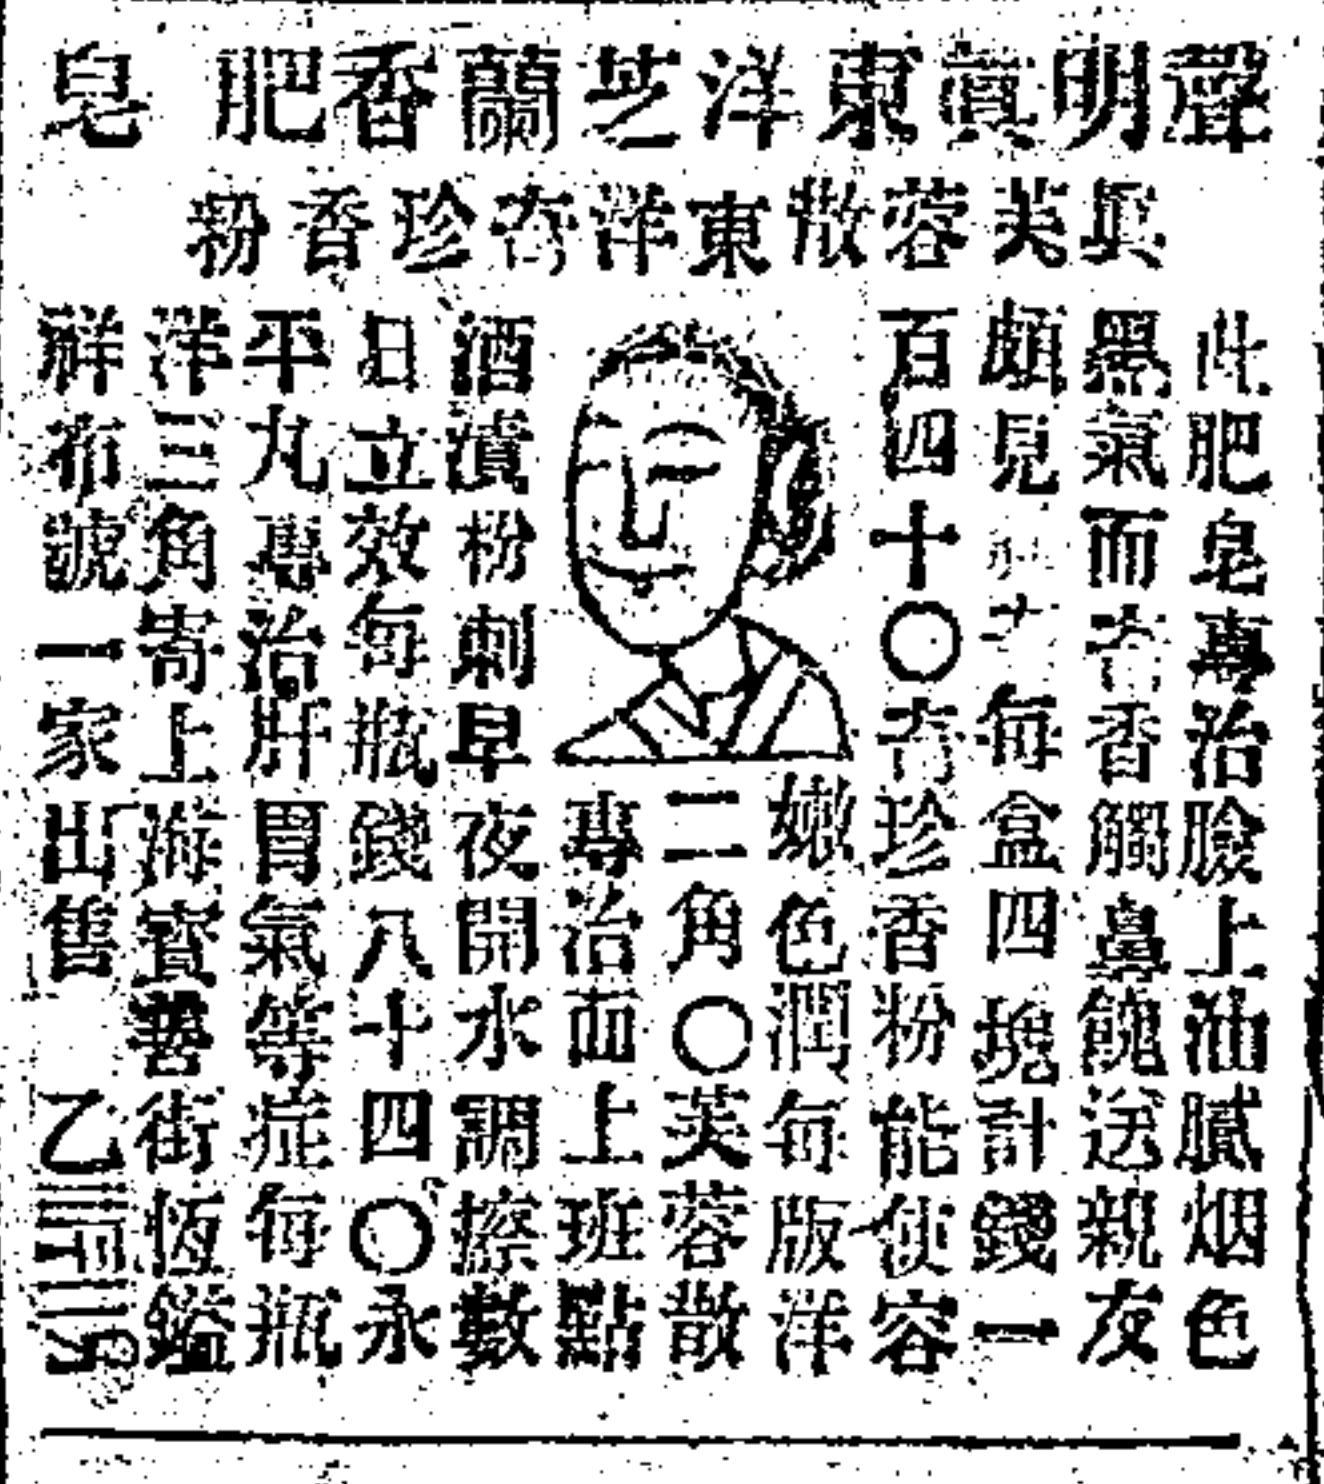 聲明眞東洋芝蘭香肥皂
眞芙蓉散東洋奇珍香粉
此肥皂專治臉上油膩烟色
黑氣而奇香觸鼻餽送親友
頗見每盒四塊計錢一
百四十〇奇珍香粉能使容
嫩色潤每版洋
二角〇芙蓉散
專治面上班點
酒漬粉刺早夜開水調擦數
日立效每瓶錢八十四〇永
平丸專治肝胃氣等症每瓶
洋三角寄上海寳善街恆鎰
祥布號一家出售 乙